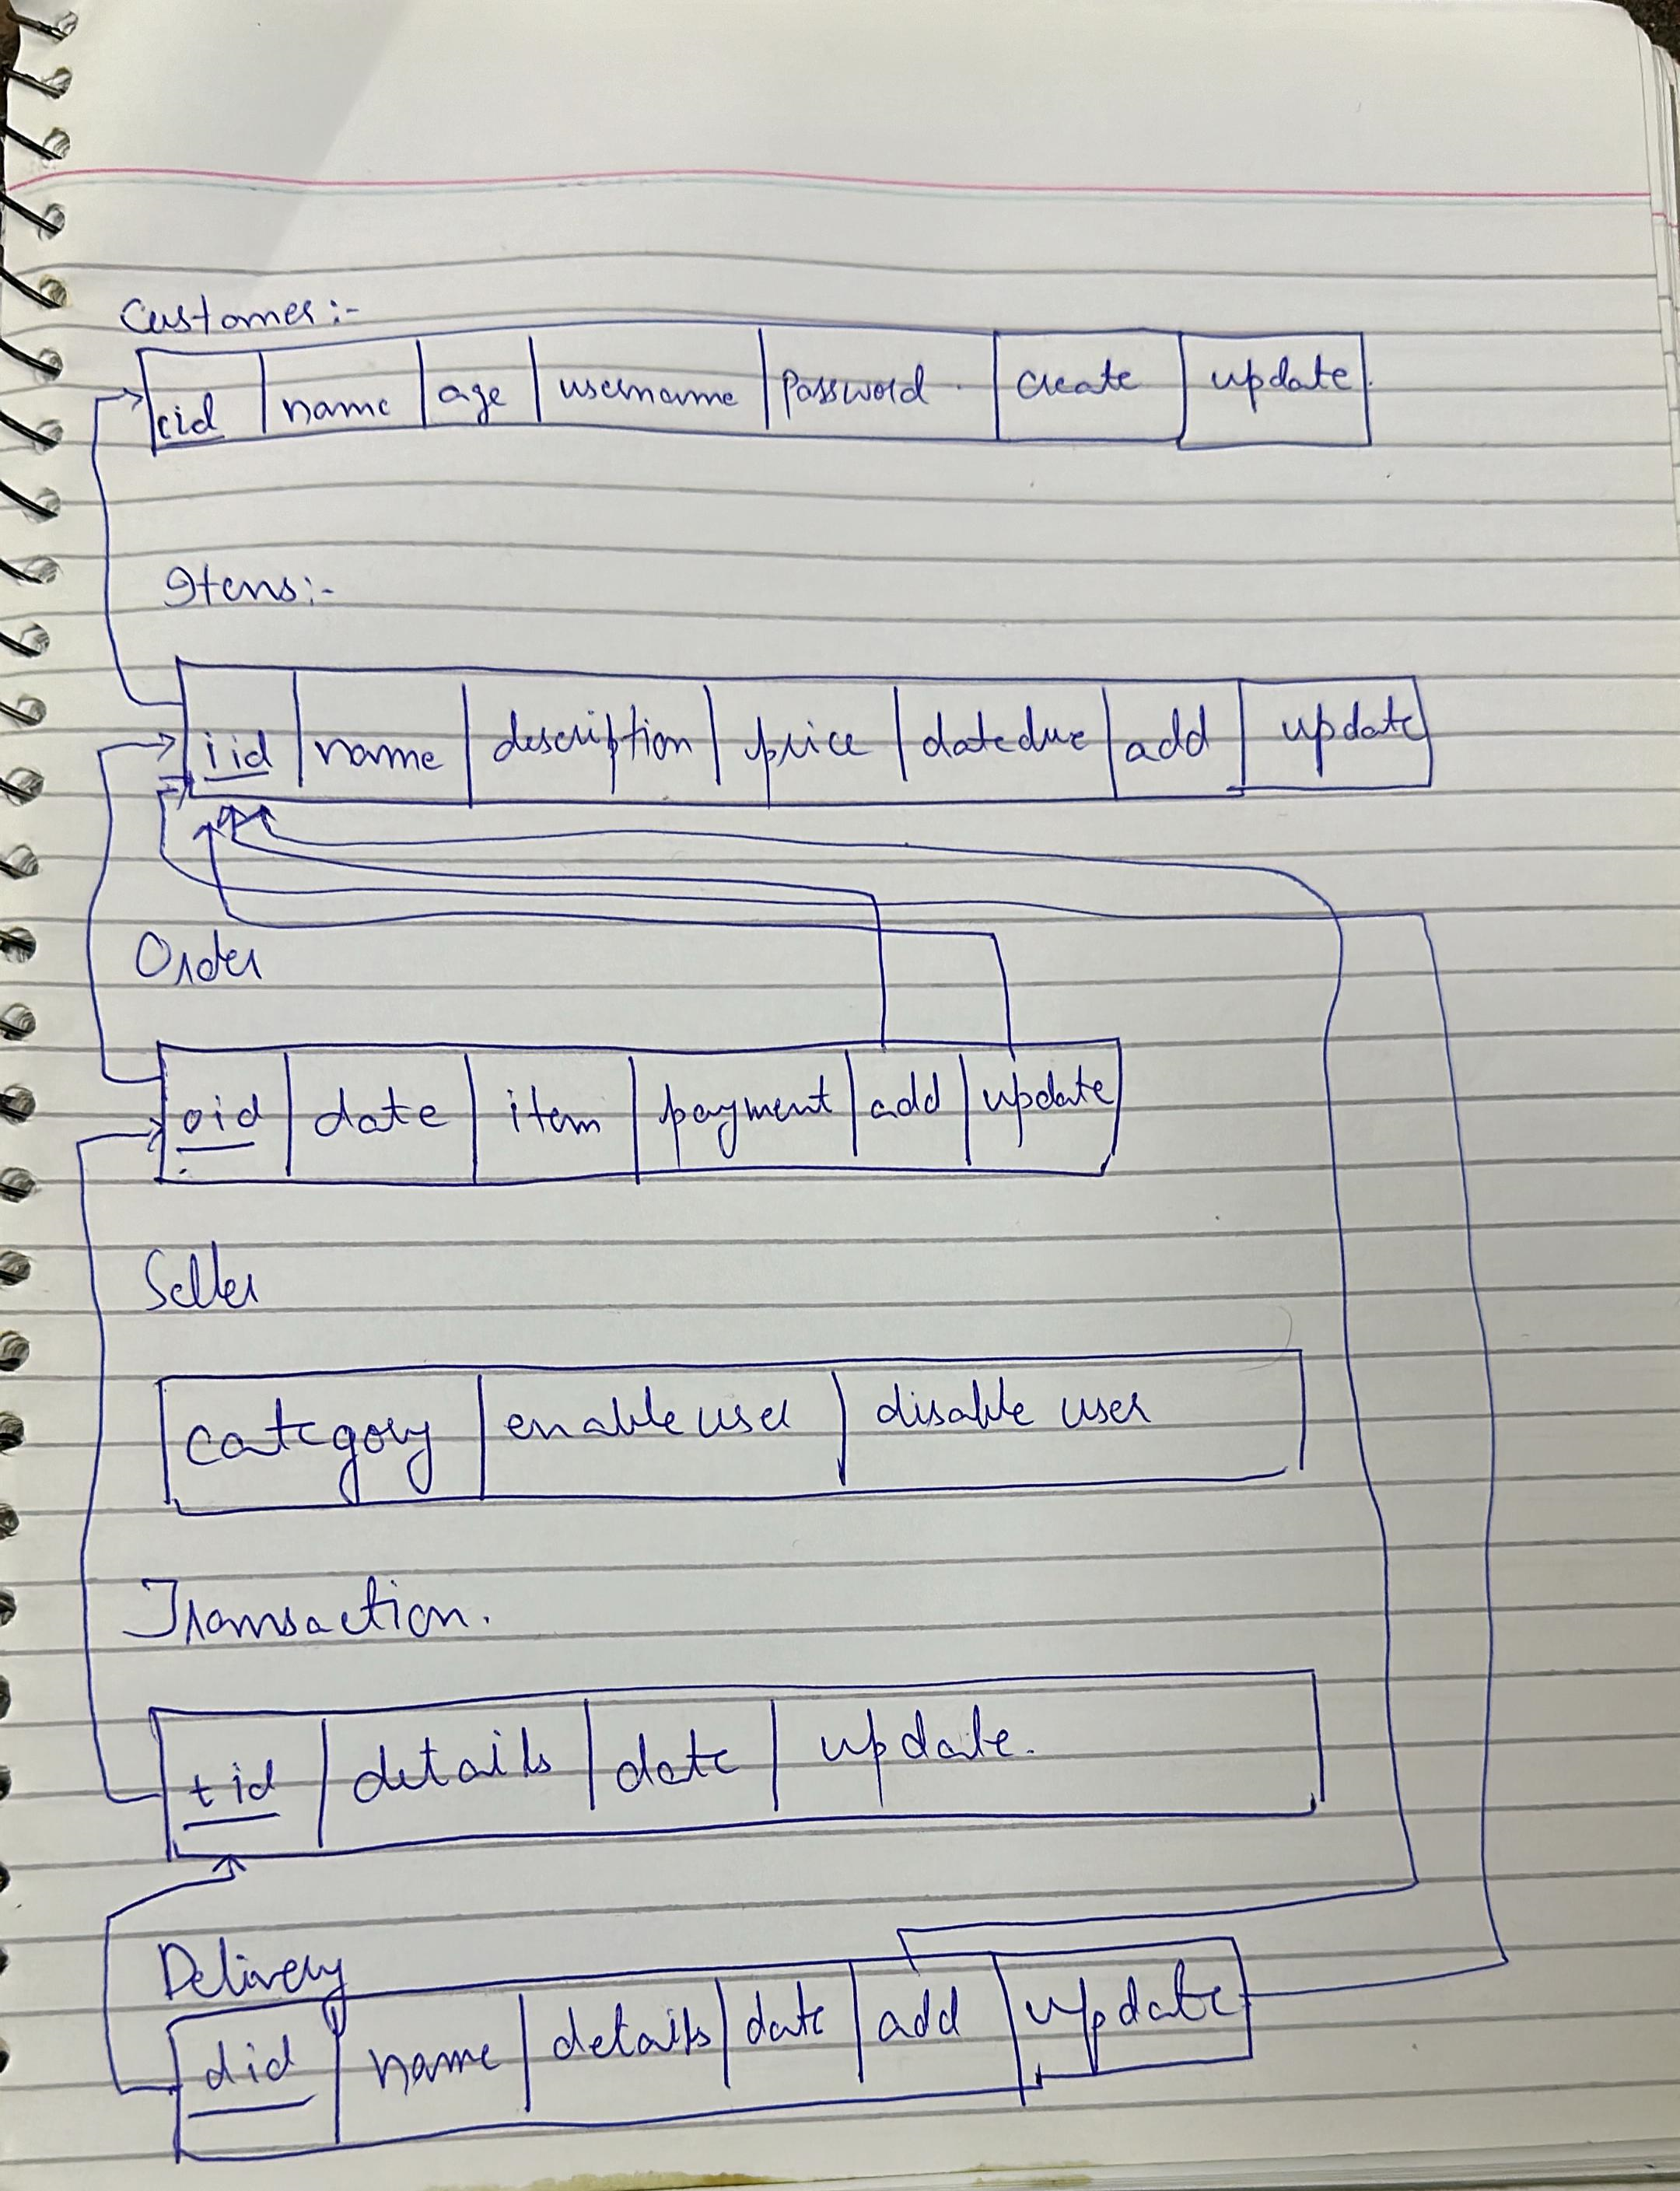 Customer:-
cid name age username Password create update
Items:-
iid name description price datedue add update
Order
oid date item payment add update
Seller
category enable user disable user
Transaction.
tid details date update.
Delivery
did name details date add update